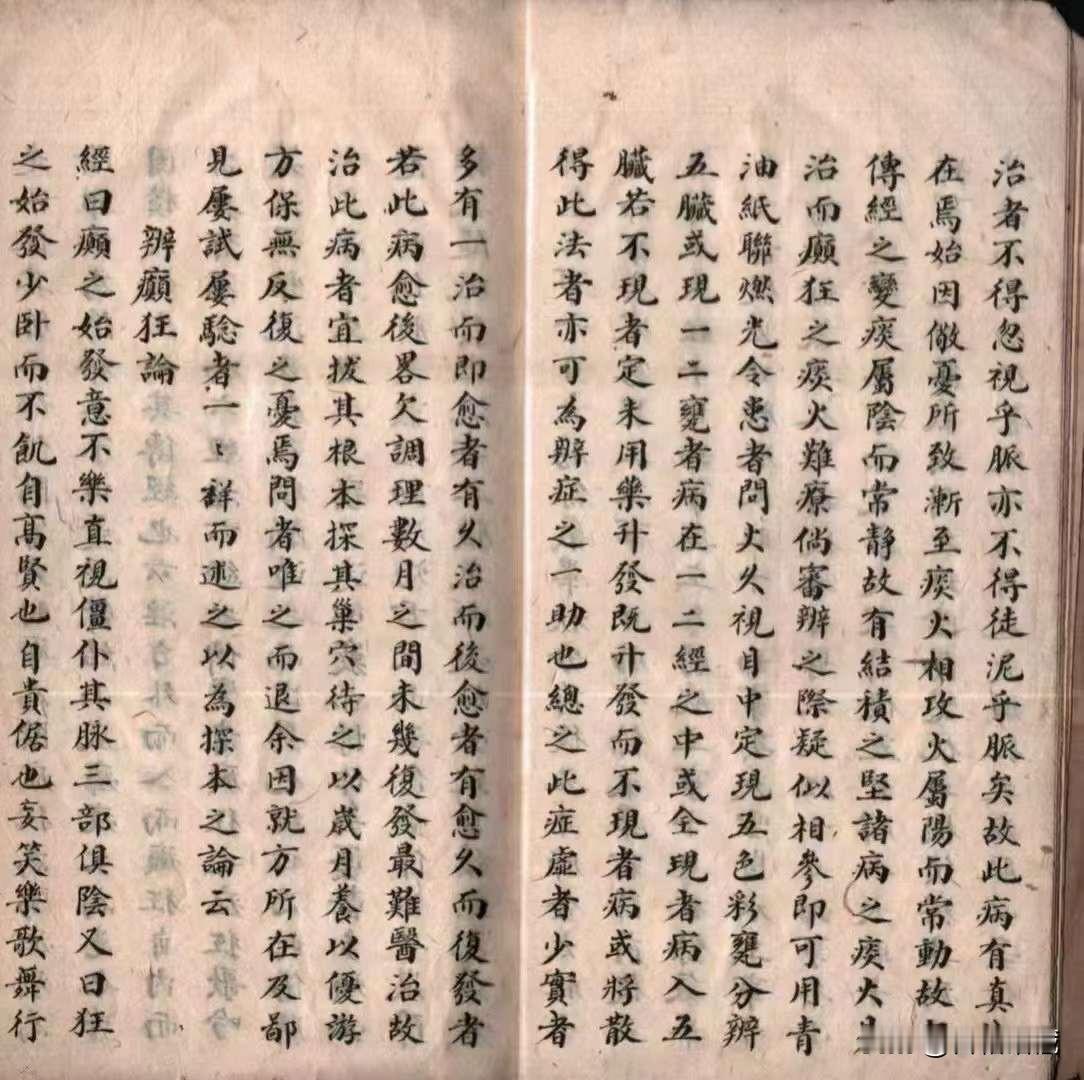 治者不得忽視乎脈亦不得徒泥乎脈矣故此病有真
在焉始因傲憂所致漸至痰火相攻火屬陽而常動故
傳經之變痰屬陰而常靜故有結積之堅諸病之痰火
治而癲狂之痰火難療倘審辨之際疑似相參即可用青
油紙聯燃光令患者問火久視目中定現五色彩甕分辨
五臟或現一二甕者病在一二經之中或全現者病入五
臟若不現者定未用藥升發既升發而不現者病或將散
得此法者亦可為辨症之一助也總之此症虛者少實者
多有一治而即愈者有久治而後愈者有愈久而復發者
若此病愈後畧欠調理數月之間未幾復發最難醫治故
治此病者宜拔其根本探其巢穴待之以歲月養以優游
方保無反復之憂焉問者唯之而退余因就方所在及鄙
見屢試屢驗者一〻詳而述之以為探本之論云
辨癲狂論
經曰癲之始發意不樂直視僵仆其脉三部俱陰又曰狂
之始發少卧而不飢自高賢也自貴倨也妄笑樂歌舞行